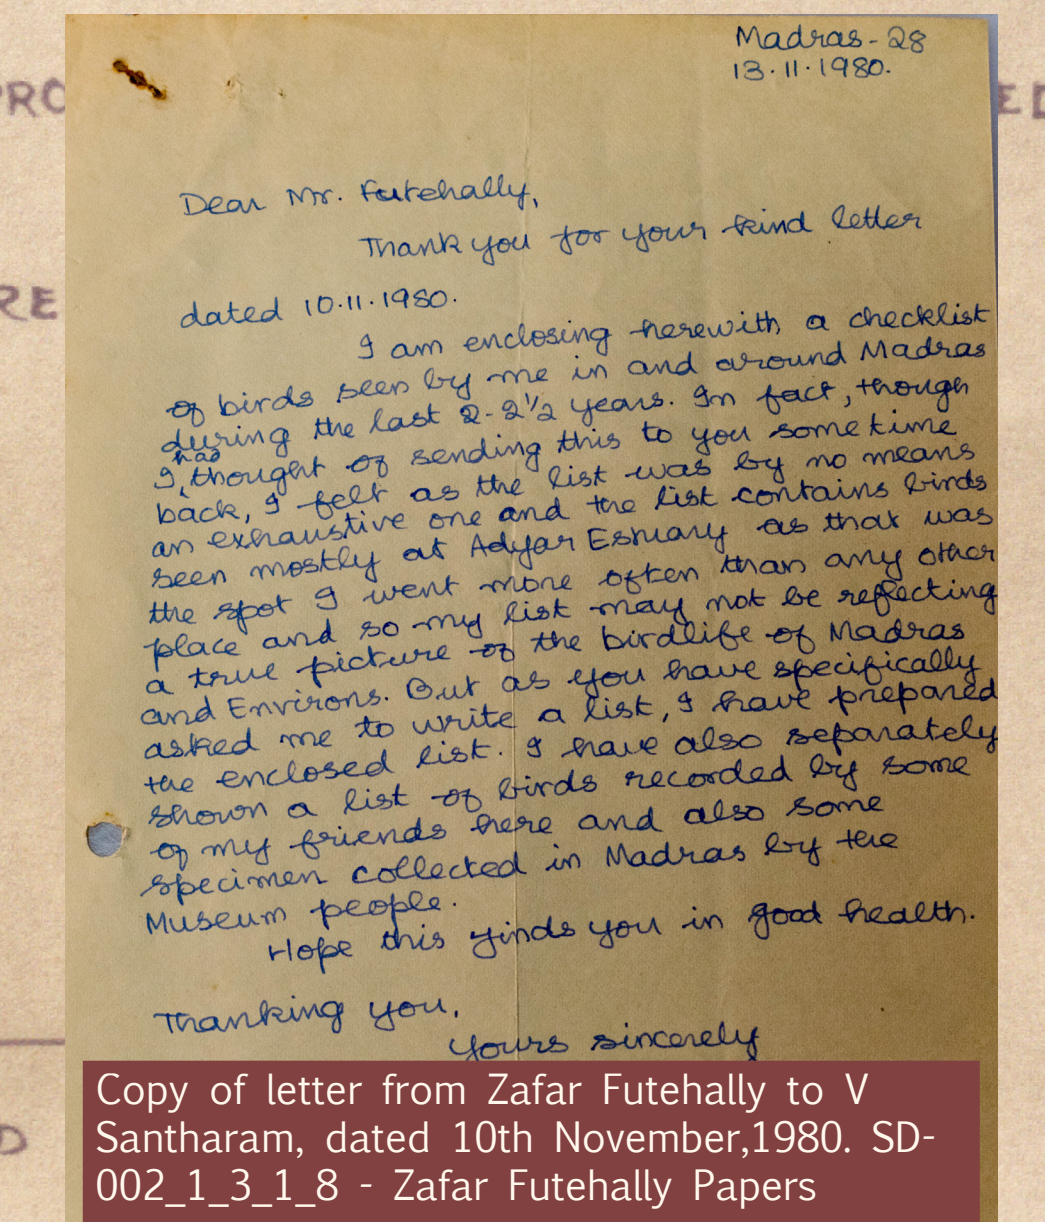 Madras-28
13.11.1980.
PRO
ED
Dear Mr. Futehally,
Thank you for your kind letter
RE
dated 10.11.1980.
I am enclosing herewith a checklist
of birds seen by me in and around Madras
during the last 2-2½ years. In fact, though
I had thought of sending this to you sometime
back, I felt as the list was by no means
an exhaustive one and the list contains birds
seen mostly at Adyar Estuary as that was
the spot I went more often than any other
place and so my list may not be reflecting
a true picture of the birdlife of Madras
and Environs. But as you have specifically
asked me to write a list, I have prepared
the enclosed list. I have also separately
shown a list of birds recorded by some
of my friends here and also some
specimen collected in Madras by the
Museum people.
Hope this finds you in good health.
Thanking you,
Yours sincerely
Copy of letter from Zafar Futehally to V
Santharam, dated 10th November,1980. SD-
002_1_3_1_8 - Zafar Futehally Papers